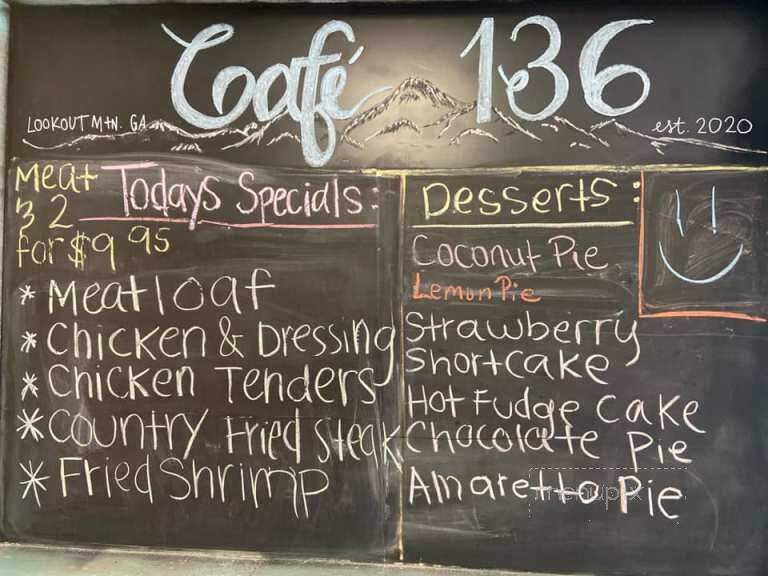 Café 136
LOOKOUT MTN. GA
est. 2020
Meat
'3 2
for $9 95
Todays Specials:
* Meatloaf
* Chicken & Dressing
* Chicken Tenders
* Country Fried Steak
* Fried Shrimp
Desserts:
Coconut Pie
Lemon Pie
Strawberry
Shortcake
Hot Fudge Cake
Chocolate Pie
Amaretto Pie
menupix